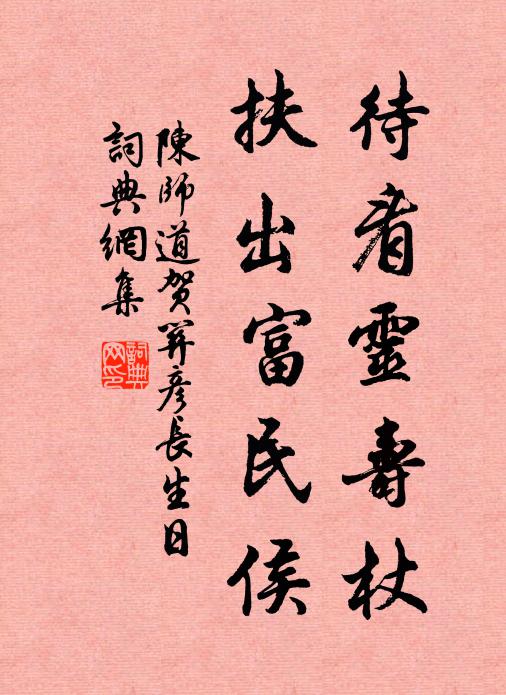 待看靈壽杖
扶出富民侯
陳師道賀關彥長生日
詞典網集
詞典網印